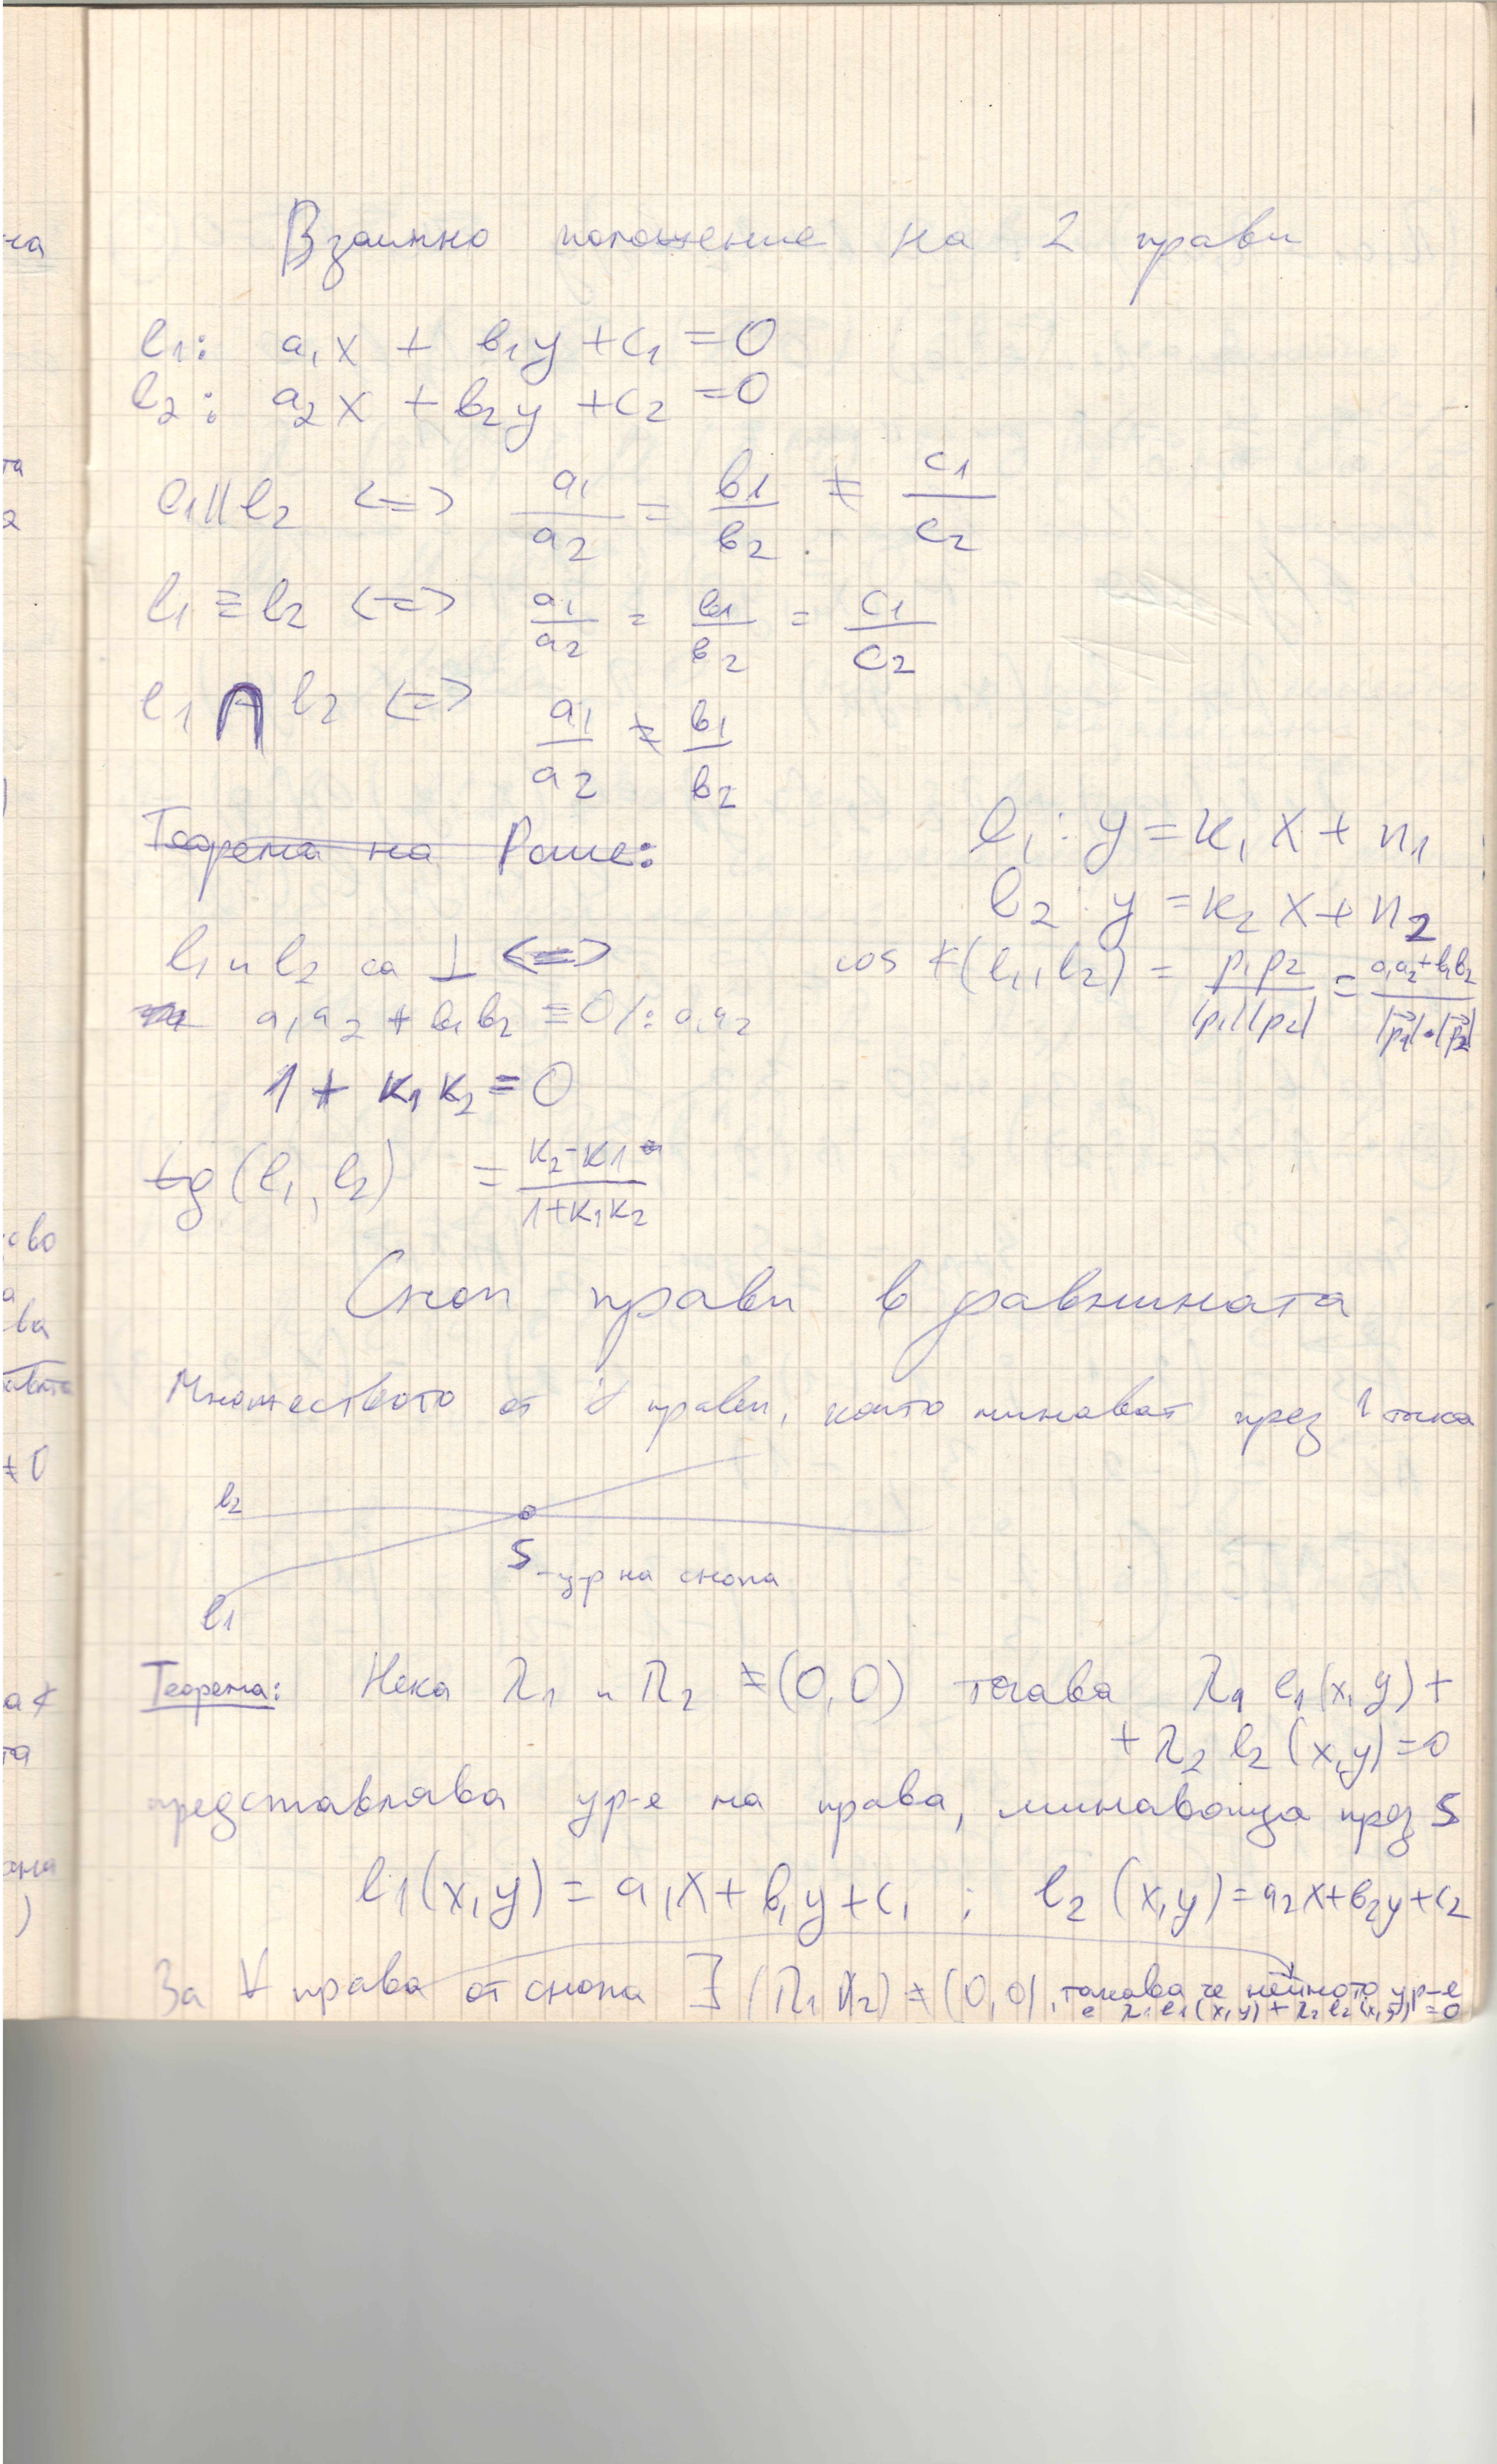 Взаимно положение на 2 прави
l₁: a₁x + b₁y + c₁ = 0
l₂: a₂x + b₂y + c₂ = 0
l₁ || l₂ <=> a₁/a₂ = b₁/b₂ ≠ c₁/c₂
l₁ ≡ l₂ <=> a₁/a₂ = b₁/b₂ = c₁/c₂
l₁ ∩ l₂ <=> a₁/a₂ ≠ b₁/b₂
Теорема на
l₁: y = k₁x + n₁
l₂: y = k₂x + n₂
l₁ и l₂ са ⊥ <=>
cos ∢(l₁, l₂) = p₁p₂/|p₁||p₂| = a₁a₂+b₁b₂/|p₁|.|p₂|
a₁a₂ + b₁b₂ = 0 /: a₁a₂
1 + k₁k₂ = 0
tg(l₁, l₂) = k₂-k₁/1+k₁k₂
Сноп прави в равнината
Множеството от ∀ прави, които минават през 1 точка
l₂
S - ц-р на снопа
l₁
Теорема: Нека λ₁ и λ₂ ≠ (0,0) тогава λ₁ l₁(x,y) +
+ λ₂ l₂(x,y) = 0
представлява ур-е на права, минаваща през S
l₁(x,y) = a₁x + b₁y + c₁ ; l₂(x,y) = a₂x + b₂y + c₂
За ∀ права от снопа ∃ (λ₁ λ₂) ≠ (0,0), такава че нейното ур-е
е λ₁l₁(x,y) + λ₂l₂(x,y) = 0